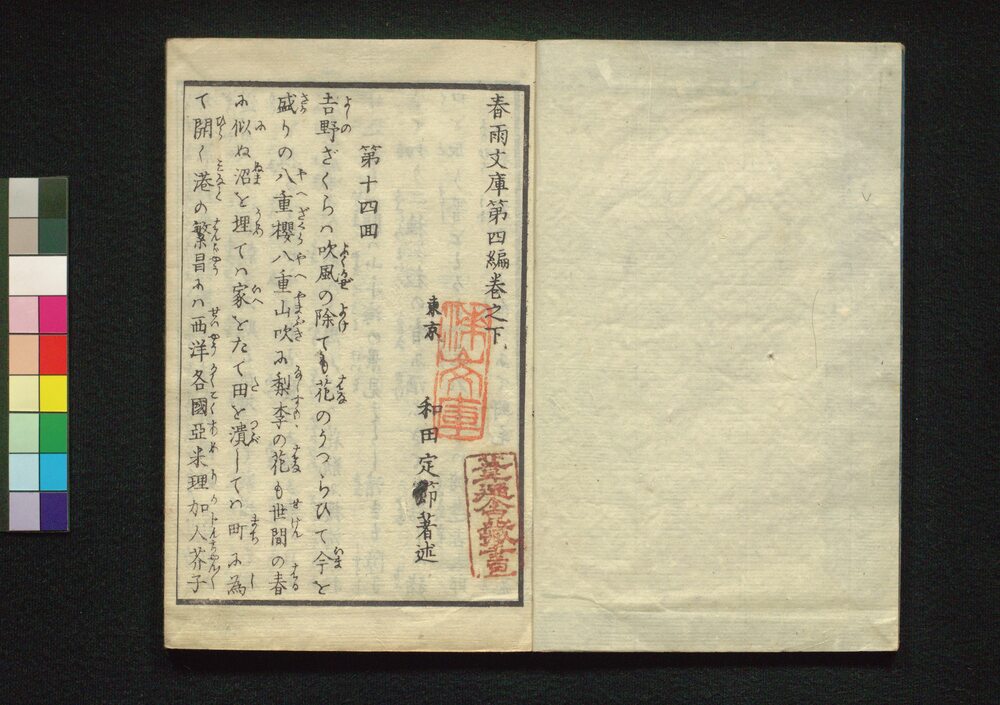 春雨文庫第四編巻之下
東京 和田定節著述
第十四囬
吉野ざくらハ吹風の除ても花のうつらひて今を
盛りの八重櫻八重山吹に梨李の花も世間の春
に似ぬ沼を埋てハ家をたて田を潰してハ町に為
て開く港の繁昌にハ西洋各國亞米理加人芥子